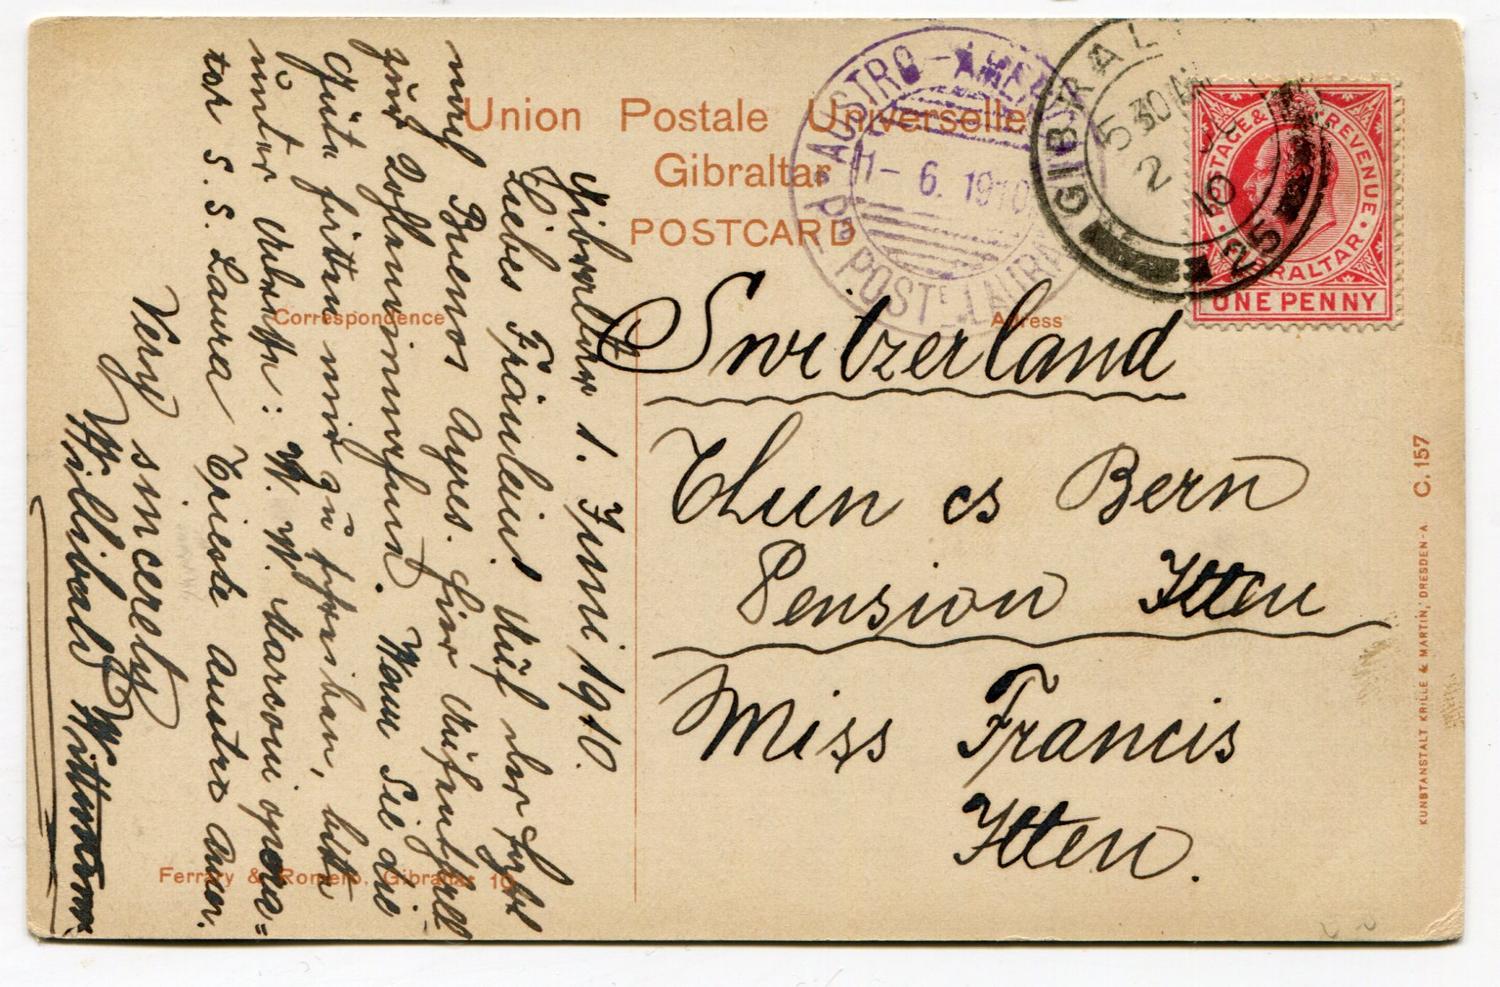 Union Postale Universelle
Gibraltar
POSTCARD
Correspondence
Adress
AUSTRO-AMER
1-6.1910
POSTE LAURA
GIBRALT
5 30 AM
2
10
25
POSTAGE & REVENUE
GIBRALTAR
ONE PENNY
Switzerland
Thun cs Bern
Pension Itten
Miss Francis
Itten.
Gibraltar 1. Juni 1910.
Liebes Fräulein! Auf der Fahrt
nach Buenos Ayres. hier Aufenthalt
zur Kohleneinnahme. Wenn Sie die
Güte hätten mir zu schreiben, bitte
unter Adresse: W. W. Marconi opera=
tor S. S. Laura Trieste Austro Amer.
Very sincerely
Willibald
Ferrary & Romero, Gibraltar 10
C. 157
KUNSTANSTALT KRILLE & MARTIN, DRESDEN-A